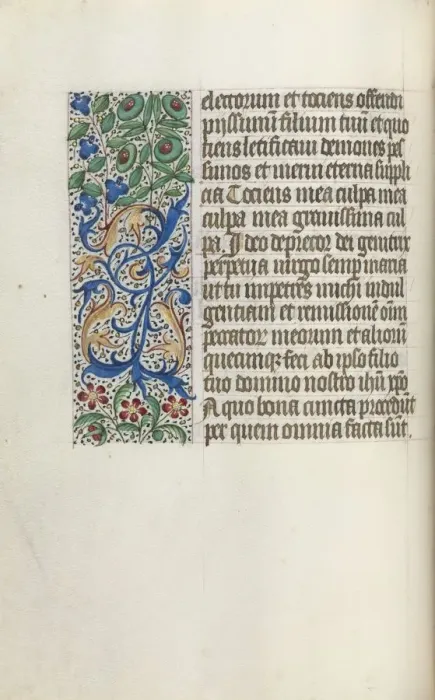 electorum et tociens offendi
pijssimū filium tuū et quo
tiens letificaui demones pes
simos et merui eterna suppli
cia Tociens mea culpa mea
culpa mea grauissima cul
pa. Ideo deprecor dei genitrix
perpetua uirgo semp maria
ut tu impetres michi indul
gentiam et remissionē oīm
peccatoꝝ meorum et alioruɱ
quecumqꝫ feci ab ipso filio
tuo domino nostro ihū xpo
A quo bona cuncta procedūt
per quem omnia facta sūt.